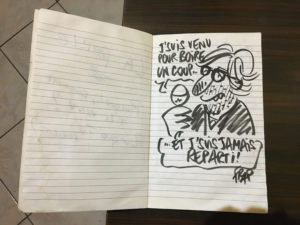 J'SUIS VENU
POUR BOIRE
UN COUP...
...ET J'SUIS JAMAIS
REPARTI!